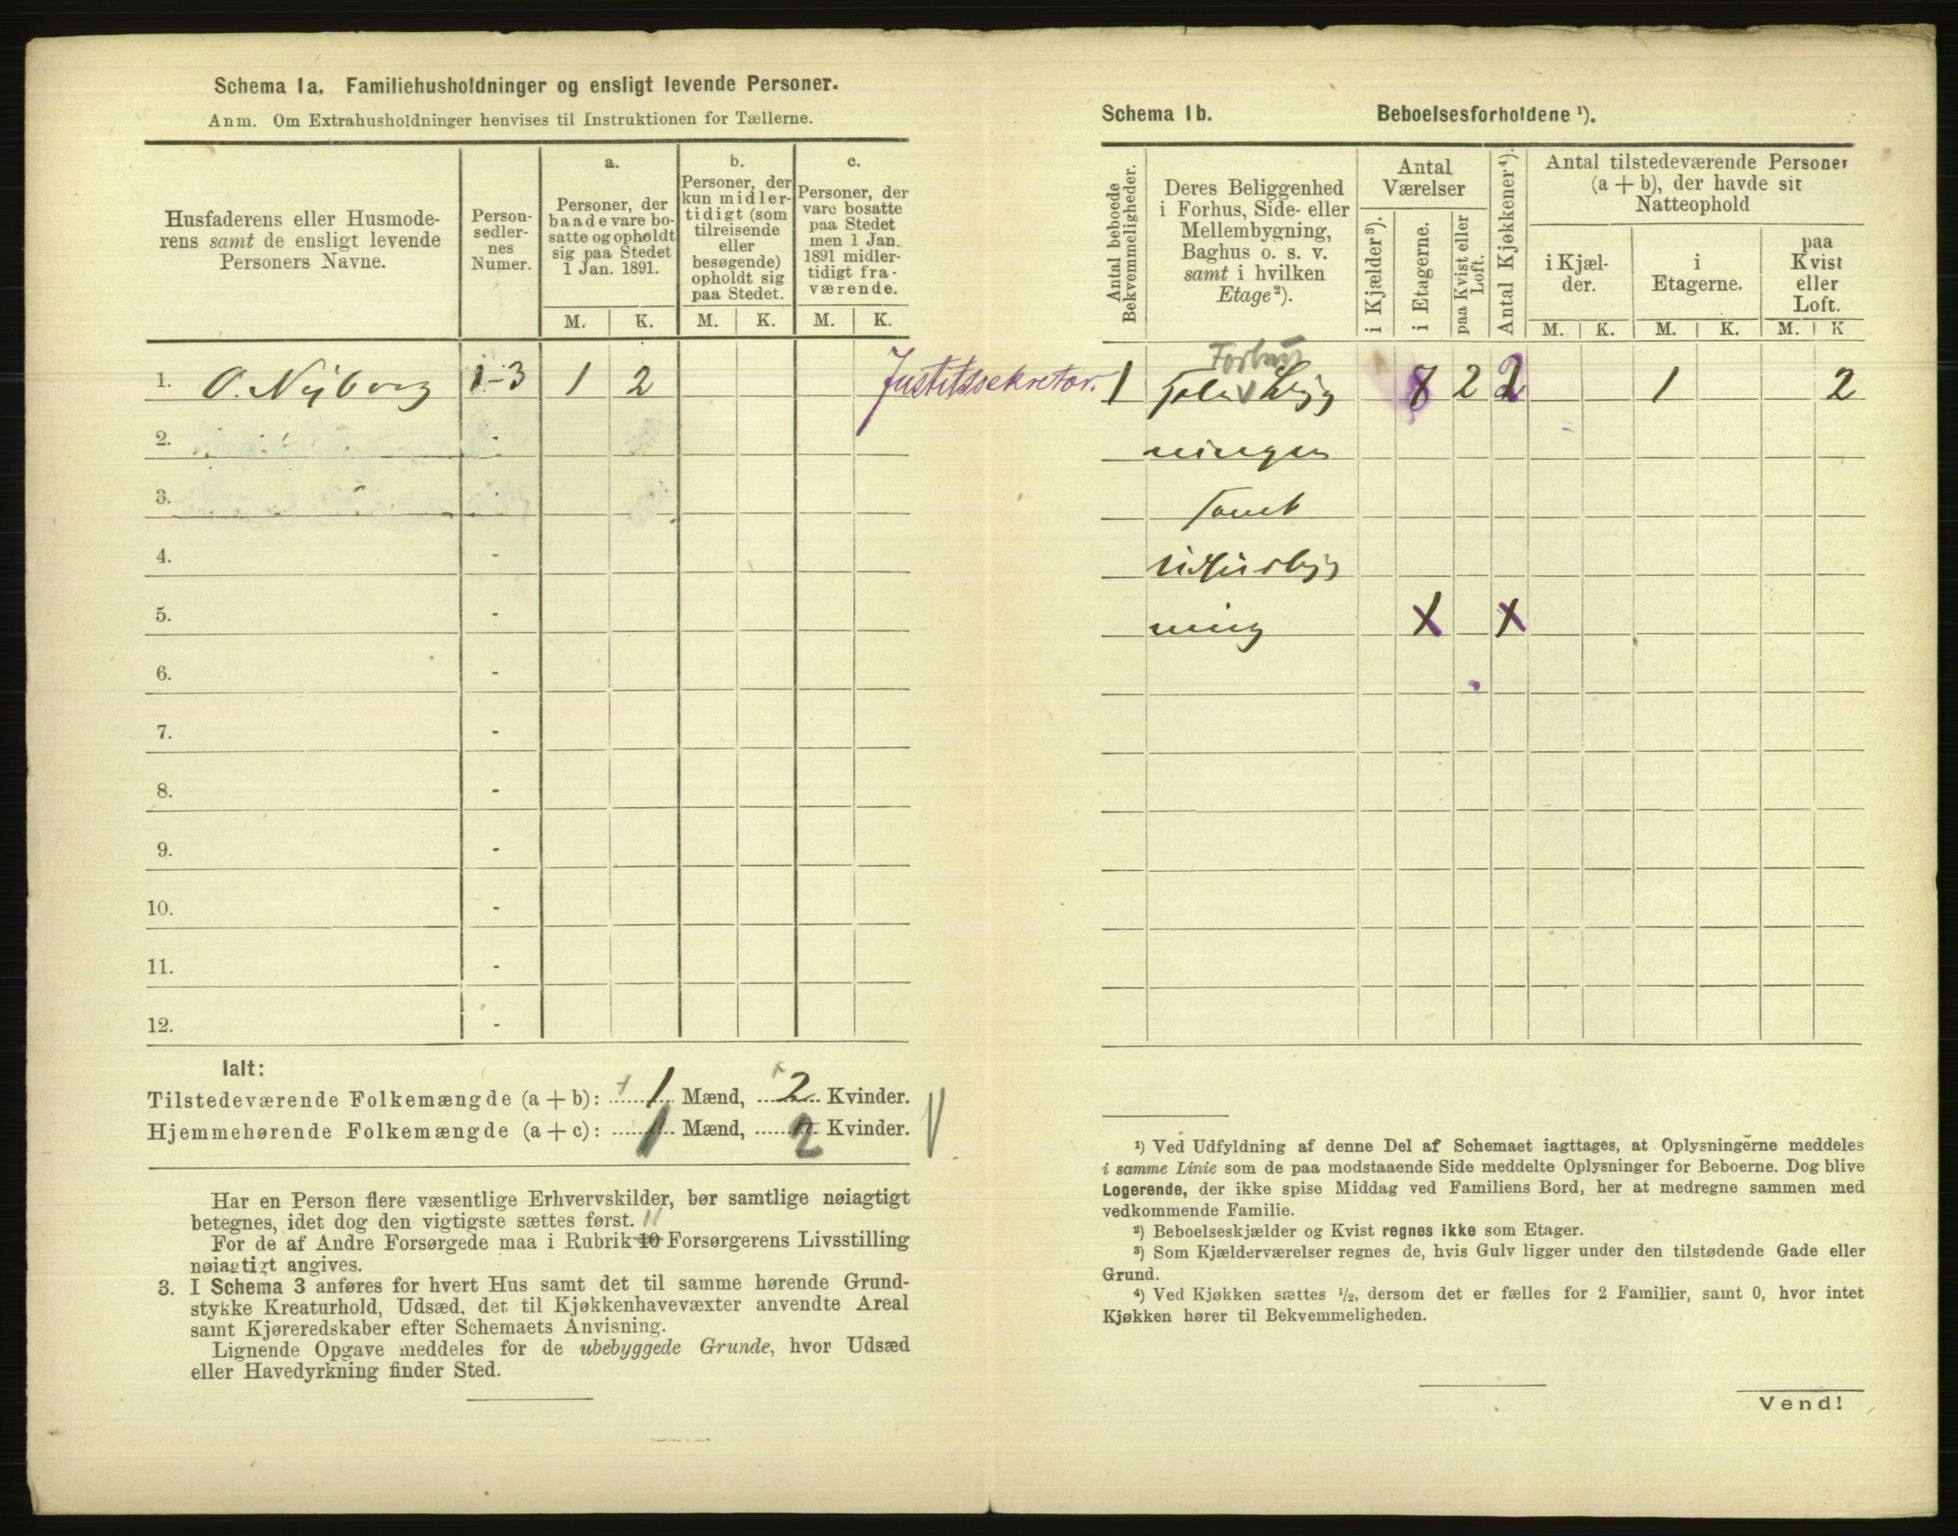 Schema 1a. Familiehusholdninger og ensligt levende Personer.
Anm. Om Extrahusholdninger henvises til Instruktionen for Tællerne.
Husfaderens eller Husmode-
rens samt de ensligt levende
Personers Navne.
Person-
sedler-
nes
Numer.
a.
Personer, der
baade vare bo-
satte og opholdt
sig paa Stedet
1 Jan. 1891.
b.
Personer, der
kun midler-
tidigt (som
tilreisende
eller
besøgende)
opholdt sig
paa Stedet.
c.
Personer, der
vare bosatte
paa Stedet
men 1 Jan.
1891 midler-
tidigt fra-
værende.
M. K. M. K. M. K.
1. O. Nyborg 1-3 1 2 Justitssekretær.
2. -
3. -
4. -
5. -
6. -
7. -
8. -
9. -
10. -
11. -
12. -
Ialt:
Tilstedeværende Folkemængde (a + b): 1 Mænd, 2 Kvinder.
Hjemmehørende Folkemængde (a + c): 1 Mænd, 2 Kvinder.
Har en Person flere væsentlige Erhvervskilder, bør samtlige nøiagtigt
betegnes, idet dog den vigtigste sættes først. 11
For de af Andre Forsørgede maa i Rubrik 10 Forsørgerens Livsstilling
nøiagtigt angives.
3. I Schema 3 anføres for hvert Hus samt det til samme hørende Grund-
stykke Kreaturhold, Udsæd, det til Kjøkkenhavevæxter anvendte Areal
samt Kjøreredskaber efter Schemaets Anvisning.
Lignende Opgave meddeles for de ubebyggede Grunde, hvor Udsæd
eller Havedyrkning finder Sted.
Schema 1b. Beboelsesforholdene ¹).
Antal beboede
Bekvemmeligheder.
Deres Beliggenhed
i Forhus, Side- eller
Mellembygning,
Baghus o. s. v.
samt i hvilken
Etage²).
Antal
Værelser
i Kjælder³).
i Etagerne.
paa Kvist eller
Loft.
Antal Kjøkkener⁴).
Antal tilstedeværende Personer
(a + b), der havde sit
Natteophold
i Kjæl-
der.
i
Etagerne.
paa
Kvist
eller
Loft.
M. K. M. K. M. K
Forhus
1 bygg 8 2 2 1 2
ningen
samt
Udhusbyg
ning X X
¹) Ved Udfyldning af denne Del af Schemaet iagttages, at Oplysningerne meddeles
i samme Linie som de paa modstaaende Side meddelte Oplysninger for Beboerne. Dog blive
Logerende, der ikke spise Middag ved Familiens Bord, her at medregne sammen med
vedkommende Familie.
²) Beboelseskjælder og Kvist regnes ikke som Etager.
³) Som Kjælderværelser regnes de, hvis Gulv ligger under den tilstødende Gade eller
Grund.
⁴) Ved Kjøkken sættes ½, dersom det er fælles for 2 Familier, samt 0, hvor intet
Kjøkken hører til Bekvemmeligheden.
Vend!